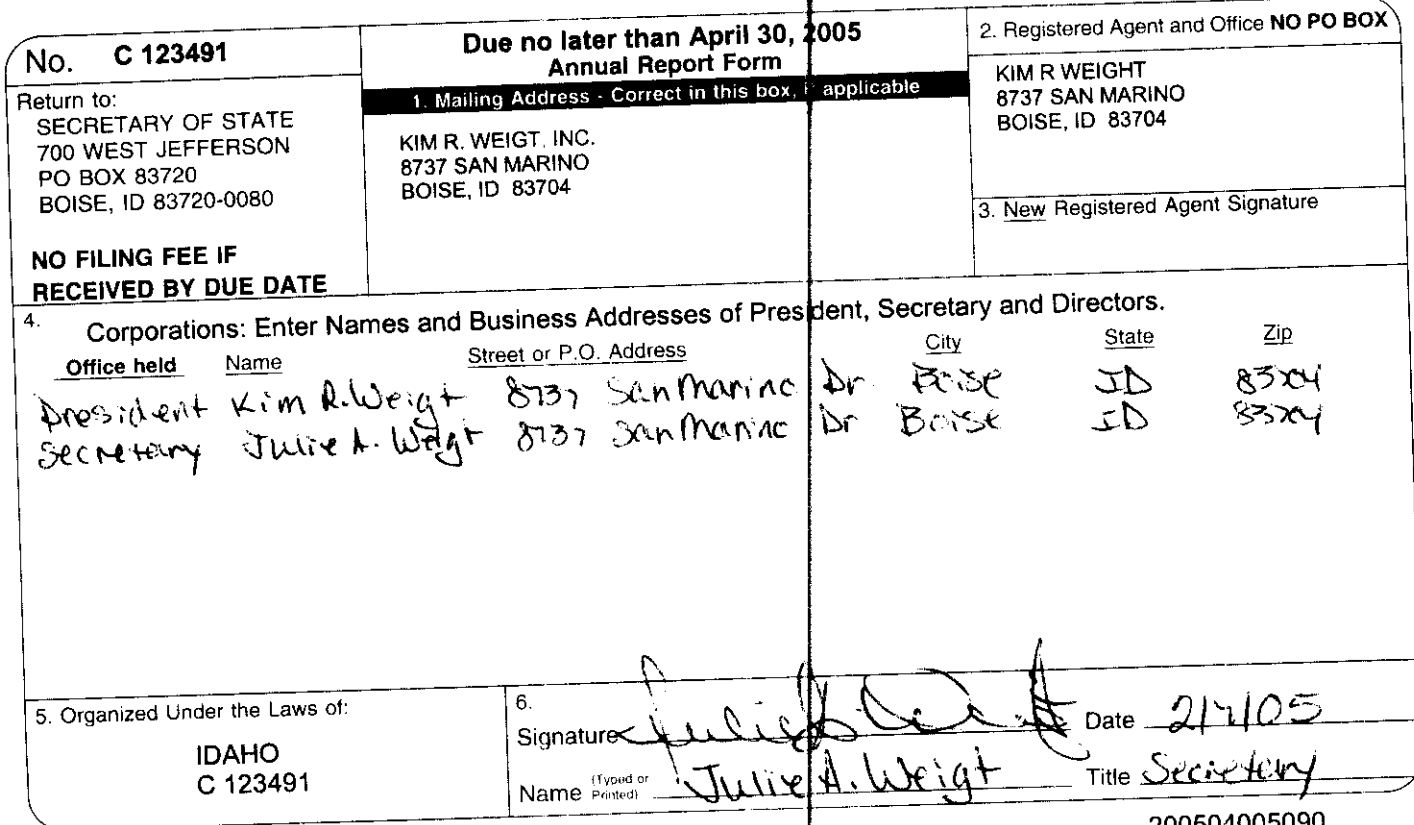 No. C 123491
Return to:
SECRETARY OF STATE
700 WEST JEFFERSON
PO BOX 83720
BOISE, ID 83720-0080
NO FILING FEE IF
RECEIVED BY DUE DATE
Due no later than April 30, 2005
Annual Report Form
1. Mailing Address - Correct in this box, if applicable
KIM R. WEIGT, INC.
8737 SAN MARINO
BOISE, ID 83704
2. Registered Agent and Office NO PO BOX
KIM R WEIGHT
8737 SAN MARINO
BOISE, ID 83704
3. New Registered Agent Signature
4. Corporations: Enter Names and Business Addresses of President, Secretary and Directors.
Office held Name Street or P.O. Address City State Zip
President Kim R. Weigt 8737 San Marino Dr Boise ID 83704
Secretary Julie A. Weigt 8737 San Marino Dr Boise ID 83704
5. Organized Under the Laws of:
IDAHO
C 123491
6.
Signature Date 2/7/05
Name (Typed or Printed) Julie A. Weigt Title Secretary
200504005090